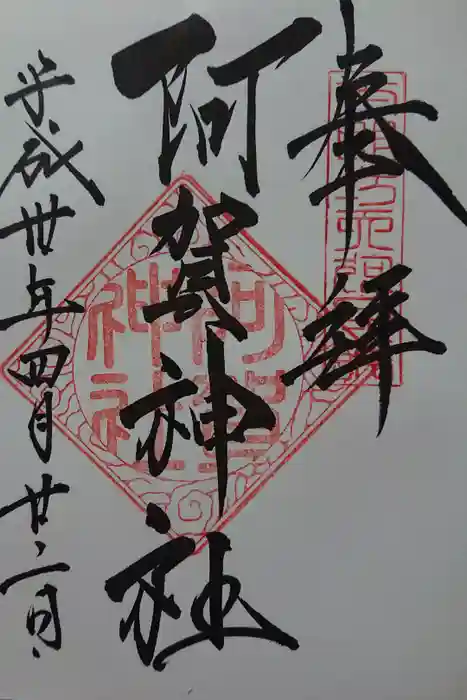 奉拜
阿賀神社
平成卅年四月廿二日
阿賀神社